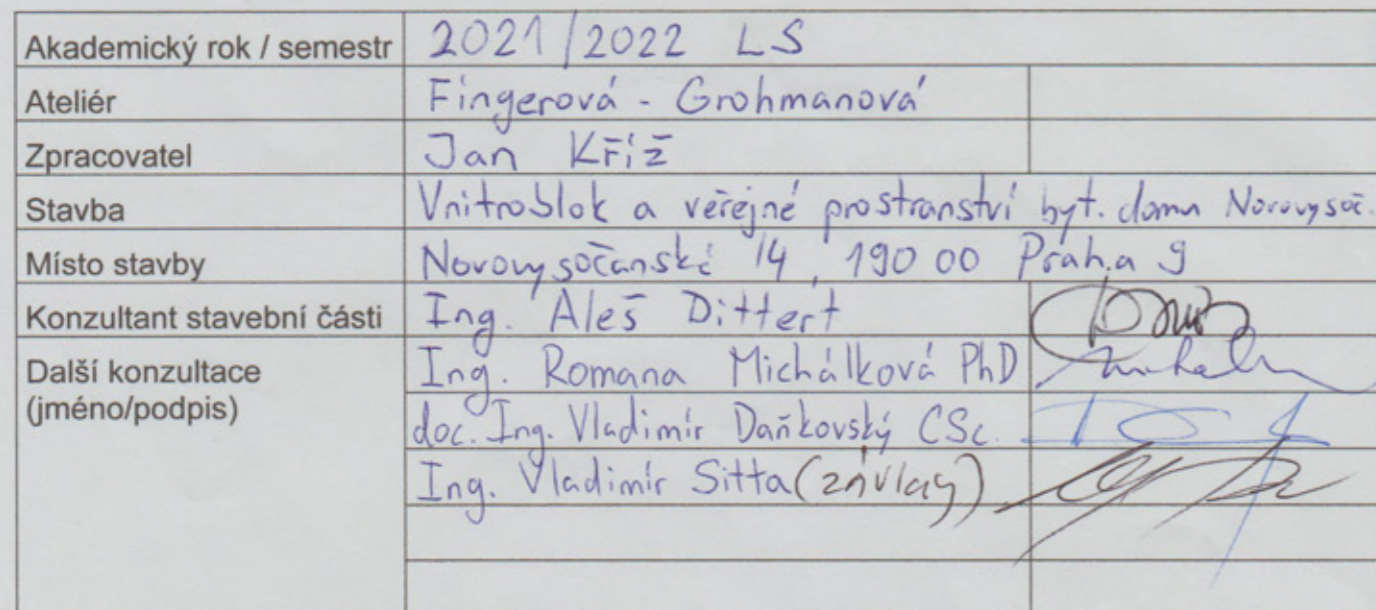 Akademický rok / semestr 2021/2022 LS
Ateliér Fingerová - Grohmanová
Zpracovatel Jan Kříž
Stavba Vnitroblok a veřejné prostranství byt. domu Novovysoč.
Místo stavby Novovysočanská 14, 190 00 Praha 9
Konzultant stavební části Ing. Aleš Dittert
Další konzultace Ing. Romana Michálková PhD
(jméno/podpis) doc. Ing. Vladimír Daňkovský CSc.
Ing. Vladimír Sitta (závlahy)